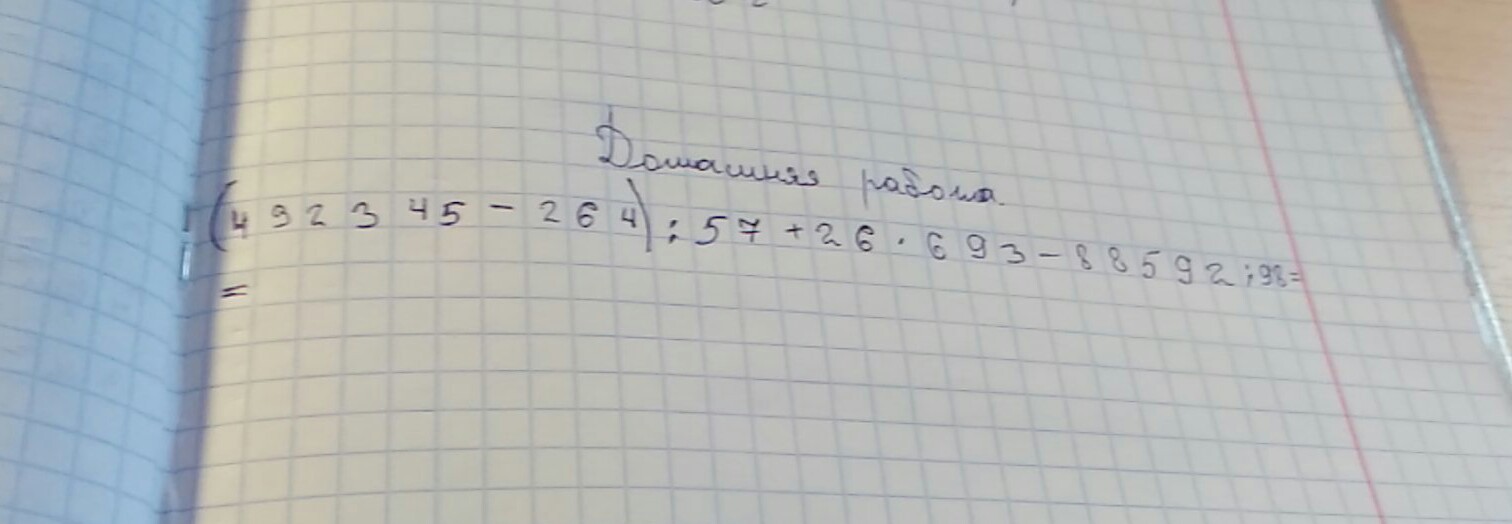 Домашняя работа.
(492345-264):57+26·693-88592:98=
=